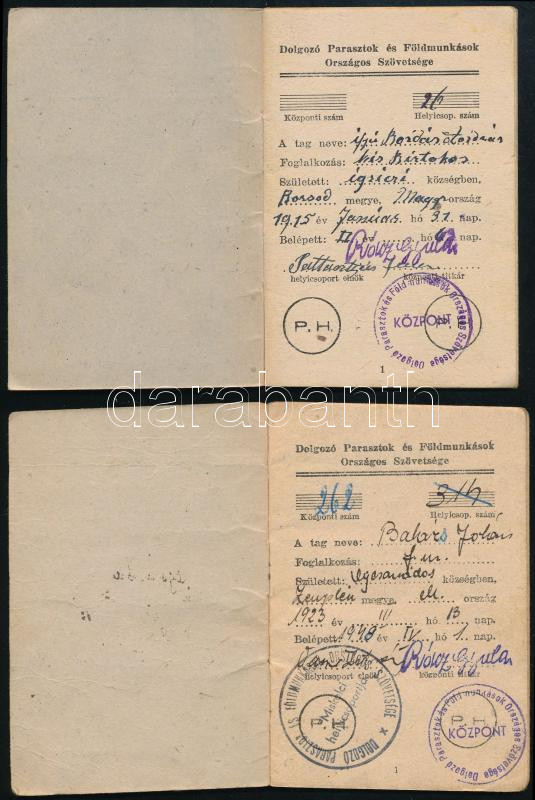 Dolgozó Parasztok és Földmunkások
Országos Szövetsége
26
Központi szám Helyicsop. szám
A tag neve: ifjú Bordás
Foglalkozás: kis Birtokos
Született: igrici községben,
Borsod megye, Magyarország
1915 év Január hó 31. nap.
Belépett: év hó nap.
Rácz Gyula
helyicsoport elnök központi titkár
P. H.
Dolgozó Parasztok és Földmunkások Országos Szövetsége
KÖZPONT
1
darabanth
Dolgozó Parasztok és Földmunkások
Országos Szövetsége
262 316
Központi szám Helyicsop. szám
A tag neve:
Foglalkozás:
Született: községben,
Zemplén megye, ország
1923 év III hó 13 nap.
Belépett: 1948 év IV hó 1. nap.
Rácz Gyula
helyicsoport elnök központi titkár
DOLGOZÓ PARASZTOK ÉS FÖLDMUNKÁSOK ORSZ. SZÖVETSÉGE
Miskolci
helyicsoportja
P. H.
P. H.
Dolgozó Parasztok és Földmunkások Országos Szövetsége
KÖZPONT
1